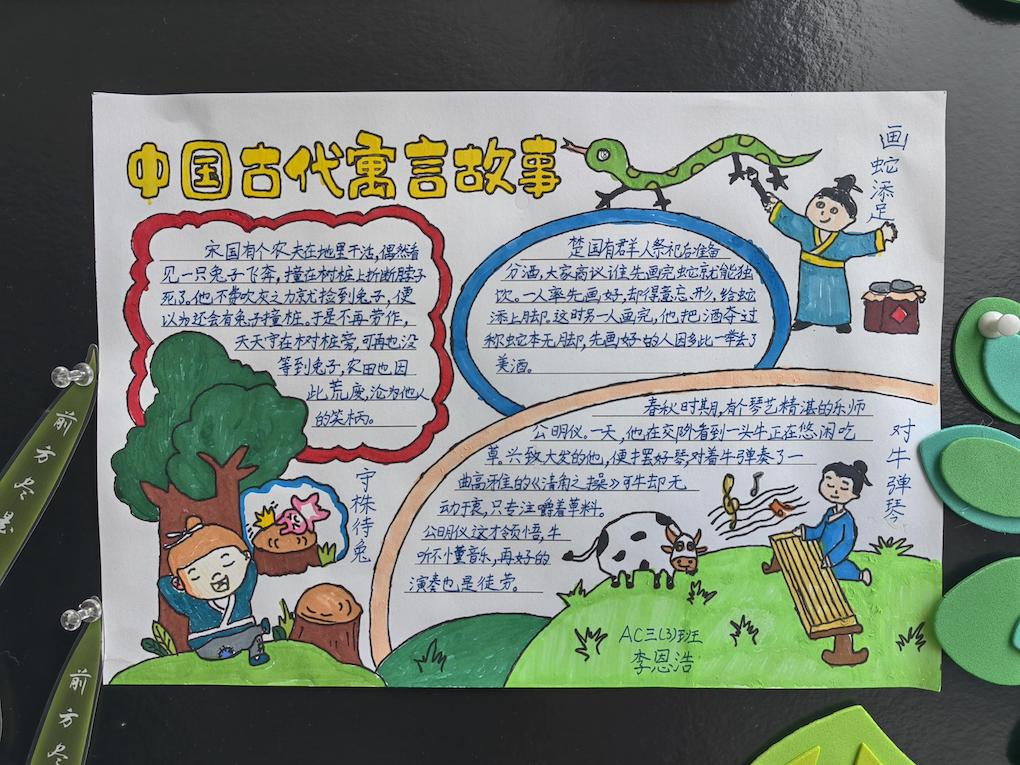 中国古代寓言故事
宋国有个农夫在地里干活,偶然看
见一只兔子飞奔,撞在树桩上折断脖子
死了。他不费吹灰之力就捡到兔子,便
以为还会有兔子撞桩。于是不再劳作,
天天守在树桩旁,可再也没
等到兔子,农田也因
此荒废,沦为他人
的笑柄。
守株待兔
画蛇添足
楚国有群人祭祀后准备
分酒,大家商议谁先画完蛇就能独
饮。一人率先画好,却得意忘形,给蛇
添上脚。这时另一人画完,他把酒夺过
称蛇本无脚,先画好的人因多此一举失了
美酒。
春秋时期,有个琴艺精湛的乐师
公明仪。一天,他在交阶看到一头牛正在悠闲吃
草。兴致大发的他,便摆好琴,对着牛弹奏了一
曲高雅的《清角之操》可牛却无
动于衷,只专注嚼着草料。
公明仪这才领悟,牛
听不懂音乐,再好的
演奏也是徒劳。
对牛弹琴
AC三(3)班
李恩浩
前方尽
前方尽